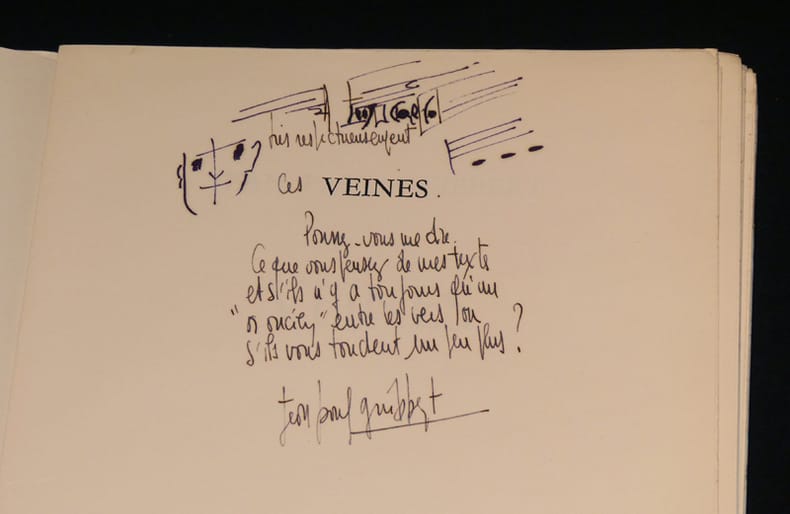 très respectueusement
Ces VEINES.
Pouvez-vous me dire
Ce que vous pensez de mes texte
et s'ils n'y a toujours qu'un
" entre les vers ou
s'ils vous touchent un peu plus ?
jean paul guibbert